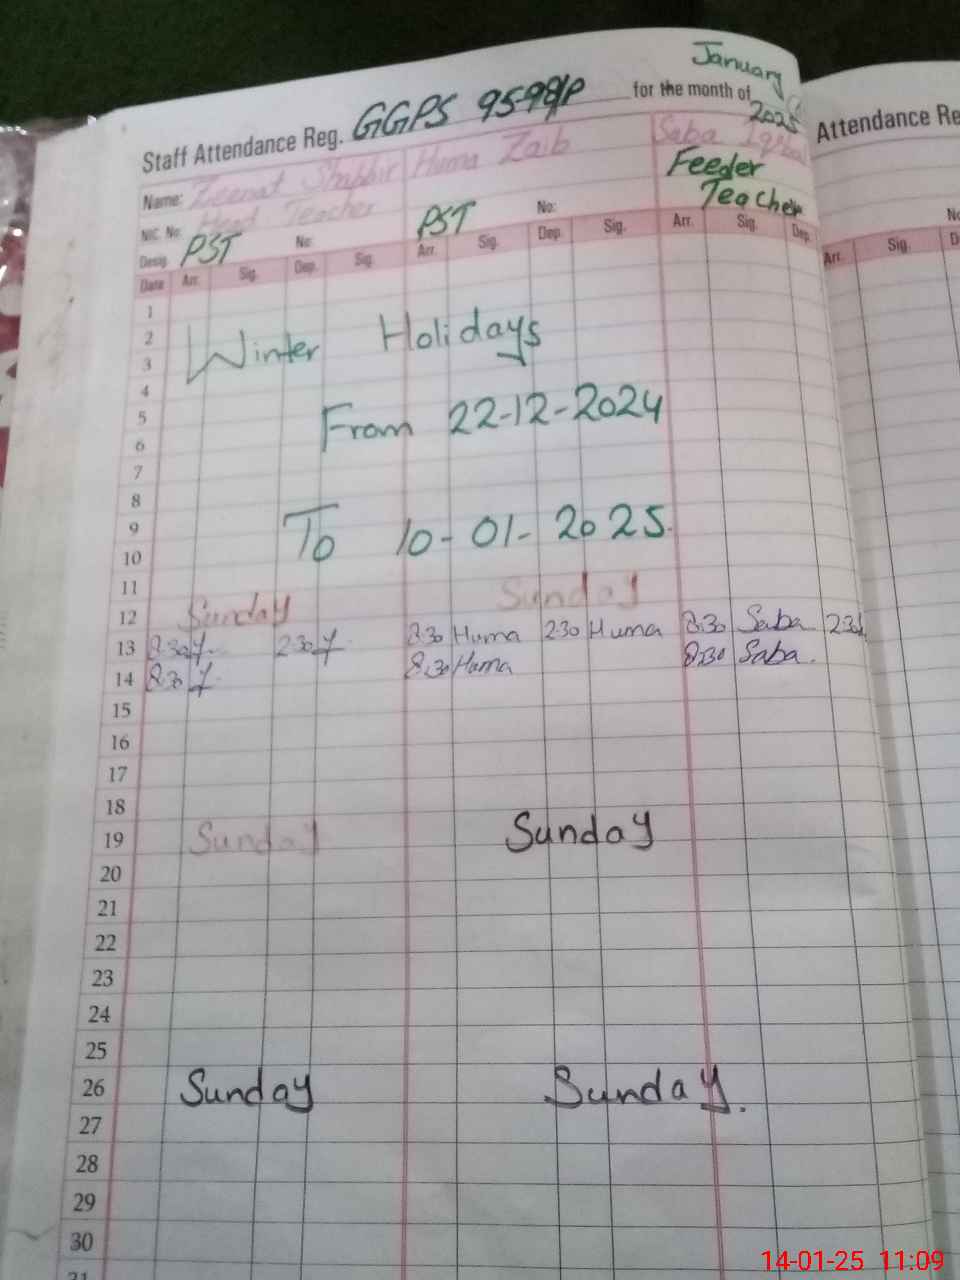 January
Staff Attendance Reg. GGPS 95-98/P for the month of 2025
Attendance Re
Name: Zeenat Shabbir Huma Zaib Saba Iqba
NIC. No. Head Teacher Feeder
Desig. PST No: PST No: Teacher
Date Arr. Sig. Dep. Sig. Arr. Sig. Dep. Sig. Arr. Sig. Dep. Arr. Sig. D
1
2 Winter Holidays
3
4
5 From 22-12-2024
6
7
8
9 To 10-01-2025
10
11
12 Sunday Sunday
13 8:30 2:30 8:30 Huma 2:30 Huma 8:30 Saba 2:30
14 8:30 8:30 Huma 8:30 Saba.
15
16
17
18
19 Sunday Sunday
20
21
22
23
24
25
26 Sunday Sunday.
27
28
29
30
31
14-01-25 11:09